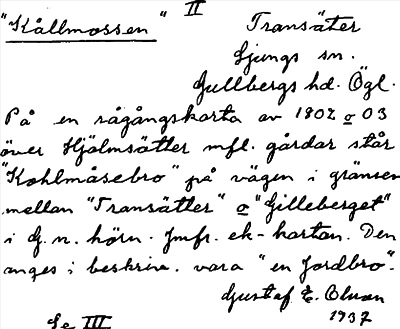 "Kållmossen" II Transäter
Ljungs sn.
Gullbergs hd. Ögl.
På en rågångskarta av 1802 o 03
över Hjälmsätter mfl. gårdar står
"Kohlmåsebro" på vägen i gränsen
mellan "Transätter" o "Gilleberget"
i G. n. hörn. Jmfr. ek-kartan. Den
anges i beskriv. vara "en Jordbro".
Gustaf E. Olsson
1937
Se III